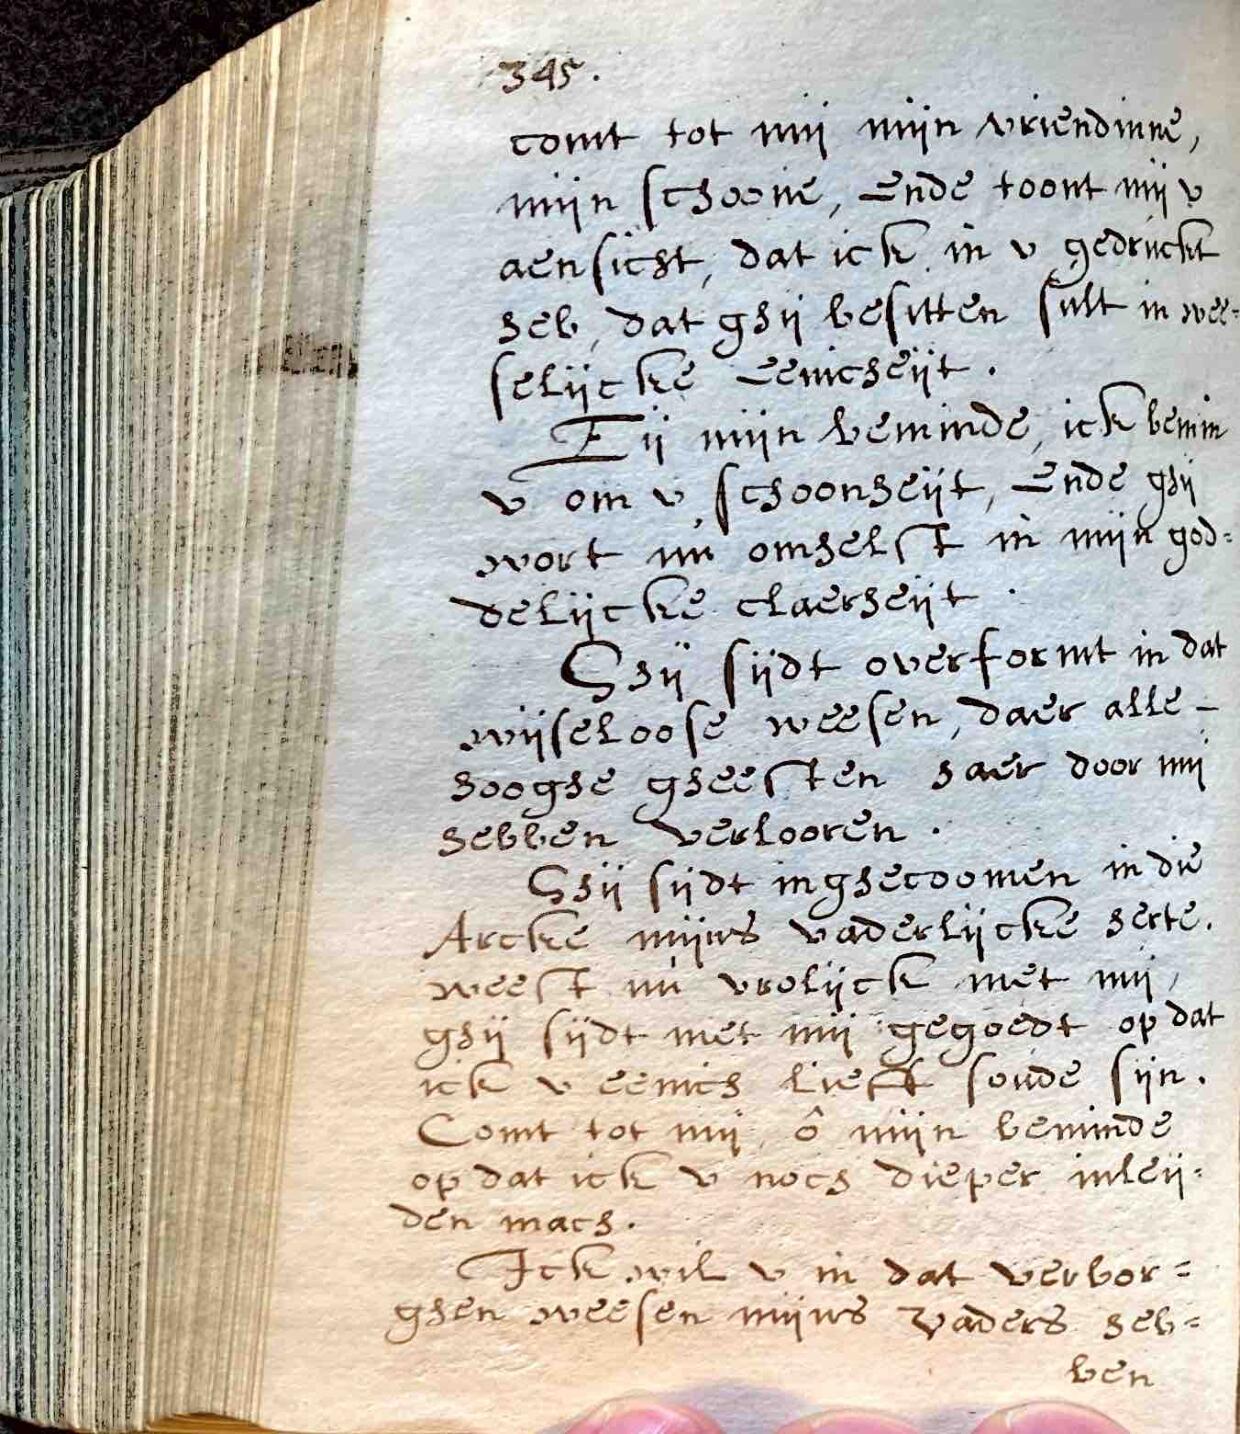 345.
comt tot mij mijn vriendinne,
mijn schoone, ende toont mij v
aensicht, dat ick in v gedruckt
heb, dat ghij besitten sult in wee=
selijcke eenicheijt.
Eij mijn beminde, ick bemin
v om v schoonheijt, ende ghij
wort nu omhelst in mijn god=
delijcke claerheijt.
Ghij sijdt overformt in dat
wijseloose weesen, daer alle-
hooghe gheesten haer door mij
hebben verlooren.
Ghij sijdt inghecoomen in die
Arcke mijns vaderlijcke herte.
weest nu vrolijck met mij,
ghij sijdt met mij gegoedt op dat
ick v eenich lieff soude sijn.
Comt tot mij, ô mijn beminde
op dat ick v noch dieper inleij=
den mach.
Ick wil v in dat verbor=
ghen weesen mijns vaders heb=
ben